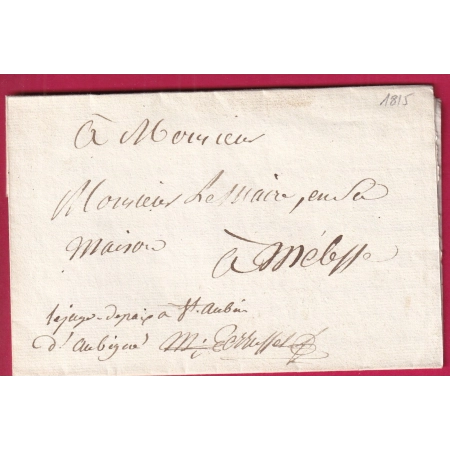 1815
à Monsieur
Monsieur Le Maire, en Sa
Maison
à Mélesse
le juge depaix à St. Aubin
d'aubigné